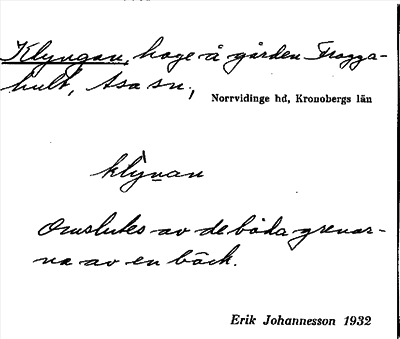 Klyngan, hage å gården Frogga-
hult, Asa sn,
Norrvidinge hd, Kronobergs län
klỳnan
Omslutes av de båda grenar-
na av en bäck.
Erik Johannesson 1932